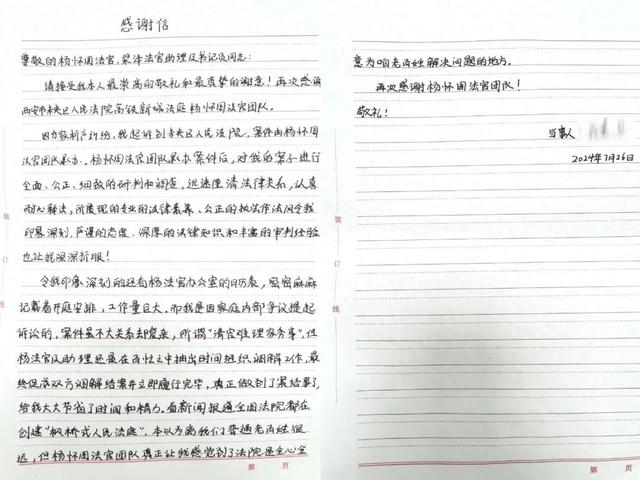 感谢信
尊敬的杨怀周法官、梁泽法官助理及书记员同志：
请接受我本人最崇高的敬礼和最真挚的谢意！再次感谢
西安市未央区人民法院高铁新城法庭杨怀周法官团队。
因为家析产纠纷，我起诉到未央区人民法院，案件由杨怀周
法官团队承办。杨怀周法官团队承办案件后，对我的案子进行
全面、公正、细致的研判和调查，迅速厘清法律关系，认真
耐心解读，所展现的专业的法律素养、公正的执法作法风令我
印象深刻，严谨的态度、深厚的法律知识和丰富的审判经验
也让我深深折服！
令我印象深刻的还有杨法官办公室的日历表，密密麻麻
记载着开庭安排，工作量巨大。而我是因家庭内部争议提起
诉讼的，案件虽不大关系却复杂，所谓“清官难理家务事”，但
杨法官及助理还是在百忙之中抽出时间组织调解工作，最
终促成双方调解结案并立即履行完毕，真正做到了案结事了，
给我大大节省了时间和精力。看新闻报道全国法院都在
创建“枫桥式人民法庭”，本以为离我们普通老百姓很
远，但杨怀周法官团队真正让我感觉到了法院是全心全
第 页
意为咱老百姓解决问题的地方。
再次感谢杨怀周法官团队！
敬礼！
当事人
2024年7月26日
第 页
装
订
线
装
订
线